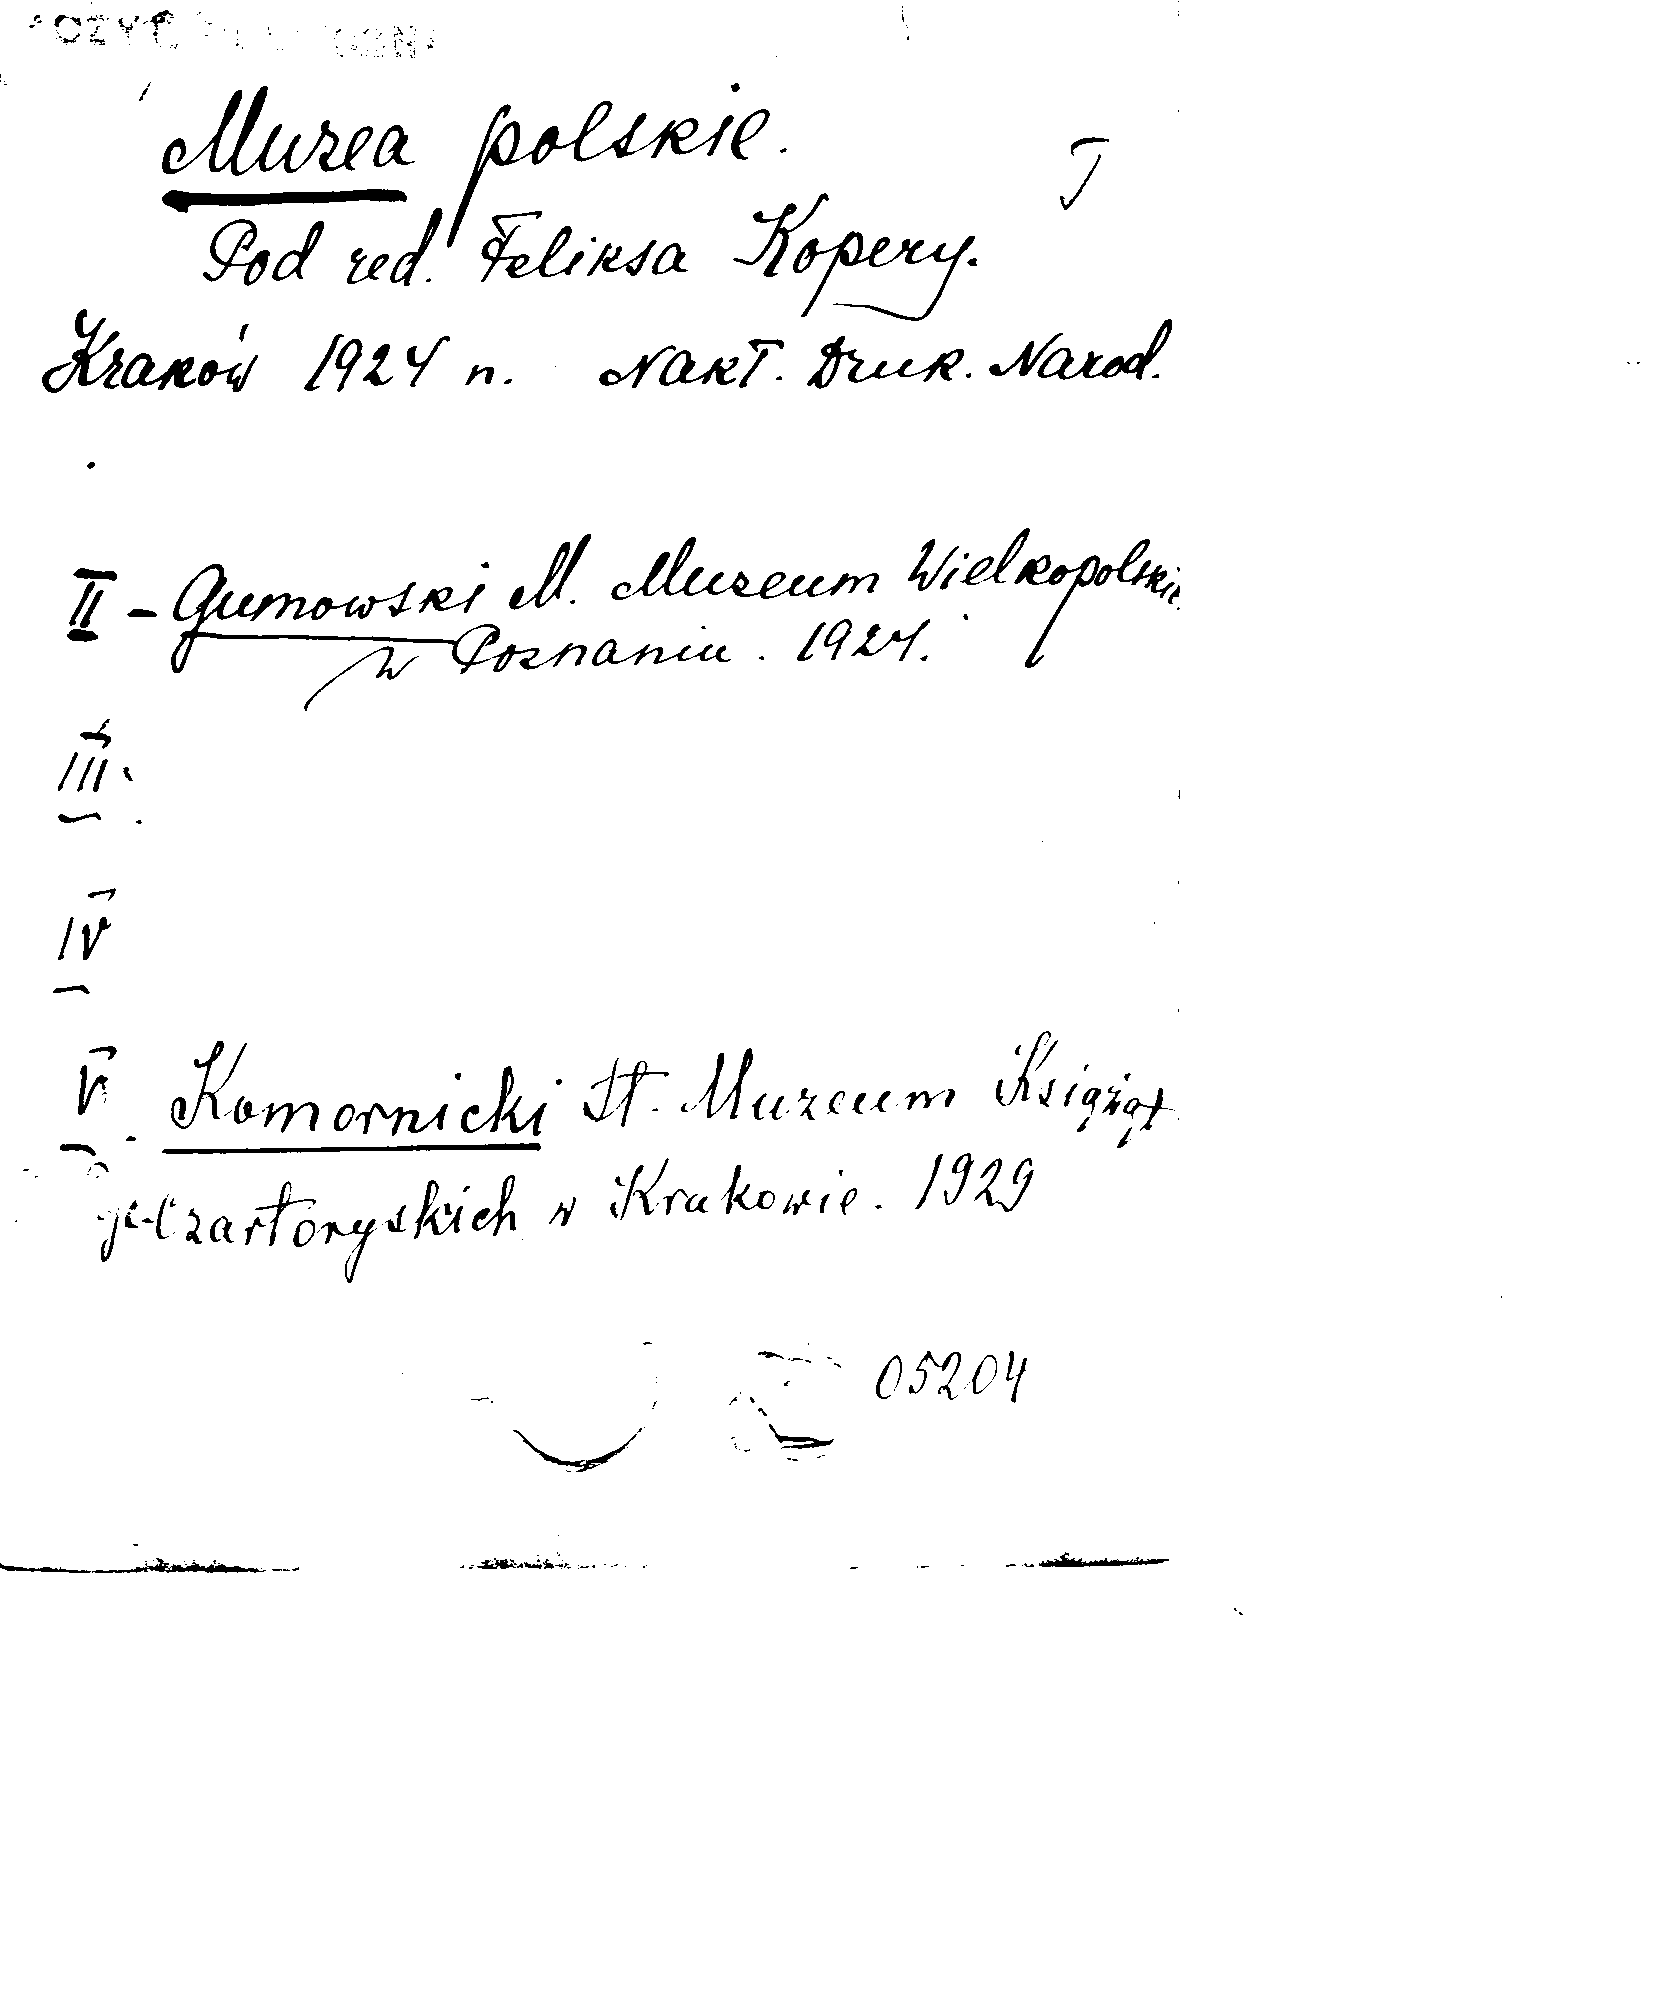 Muzea polskie.
T
Pod red. Feliksa Kopery.
Kraków 1924 n. Nakł. Druk. Narod.
II - Gumowski M. Muzeum Wielkopolskie
w Poznaniu. 1924.
III.
IV
V. Komornicki St. Muzeum Książąt
Czartoryskich w Krakowie. 1929
05204